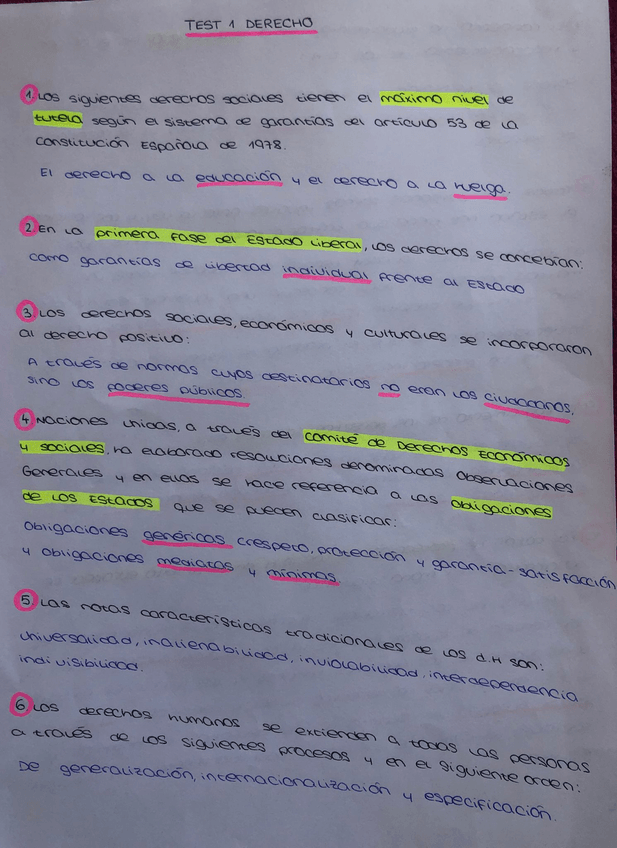 TEST 1 DERECHO
1. Los siguientes derechos sociales tienen el máximo nivel de
tutela según el sistema de garantías del artículo 53 de la
Constitución Española de 1978.
El derecho a la educación y el derecho a la huelga.
2. En la primera fase del Estado Liberal, los derechos se concebían:
como garantías de libertad individual frente al Estado
3 Los derechos sociales, económicos y culturales se incorporaron
al derecho positivo:
A través de normas cuyos destinatarios no eran los ciudadanos,
sino los poderes públicos.
4 Naciones unidas, a través del comité de Derechos Económicos
y sociales, ha elaborado resoluciones denominadas Observaciones
Generales y en ellas se hace referencia a las obligaciones
de los Estados que se pueden clasificar:
Obligaciones genéricas (respeto, protección y garantía-satisfacción
y obligaciones mediatas y mínimas.
5 Las notas características tradicionales de los d.H son:
universalidad, inalienabilidad, inviolabilidad, interdependencia
indivisibilidad.
6 Los derechos humanos se extienden a todas las personas
a través de los siguientes procesos y en el siguiente orden:
De generalización, internacionalización y especificación.